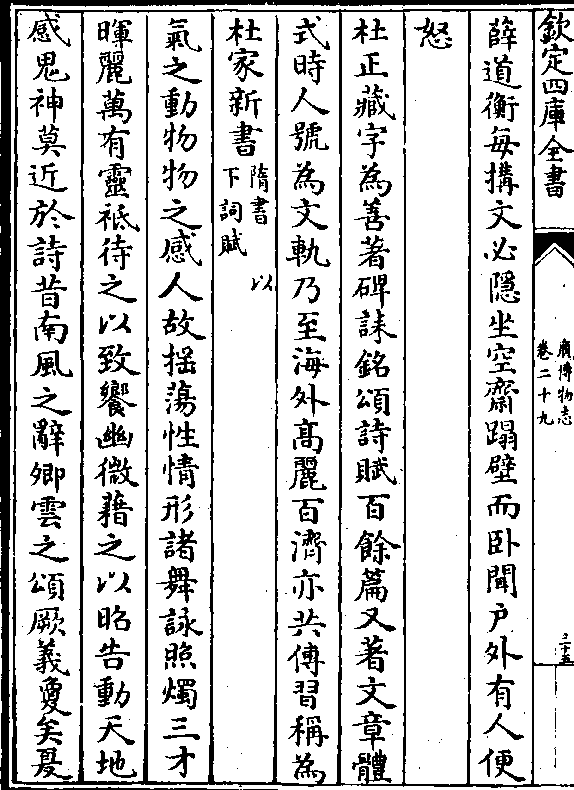 欽定四庫全書
廣博物志
卷二十九
二十五
薛道衡每搆文必隱坐空齋蹋壁而卧聞户外有人便
怒
杜正藏字為善著碑誄銘頌詩賦百餘篇又著文章體
式時人號為文軌乃至海外髙麗百濟亦共傳習稱為
杜家新書隋書 以
下詞賦
氣之動物物之感人故揺蕩性情形諸舞詠照燭三才
暉麗萬有靈祗待之以致饗幽微藉之以昭告動天地
感鬼神莫近於詩昔南風之辭卿雲之頌厥義夐矣夏